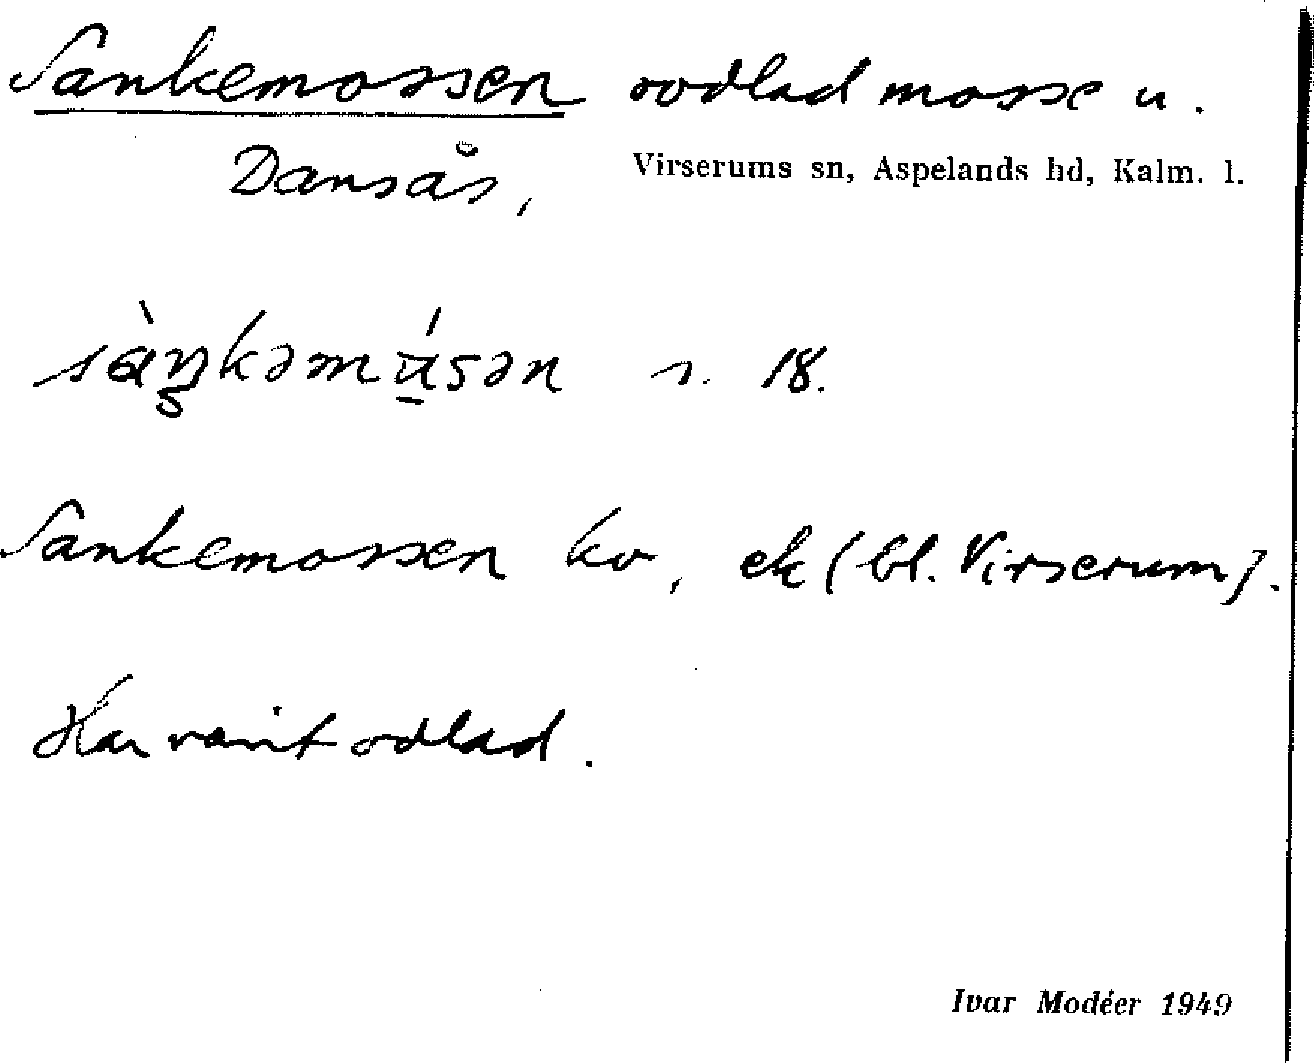 Sankemossen oodlad mosse u.
Dansås, Virserums sn, Aspelands hd, Kalm. l.
sàŋkəmúsən s. 18.
Sankemossen ko, ek (bl. Virserum).
Har varit odlad.
Ivar Modéer 1949